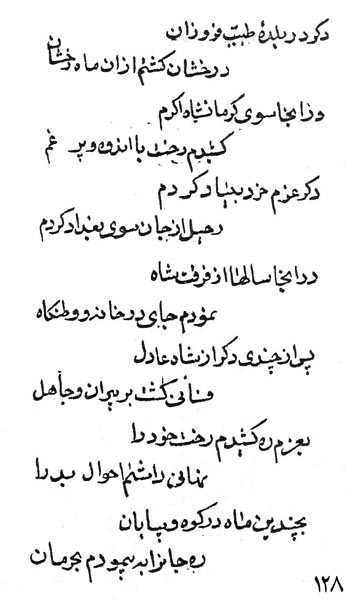 دکر در بلدهٔ طیب فروزان
درخشان کشتم ازان ماه رخشان
وز انجا سوی کرمانشاه اکرم
کشیدم رخت با اندوه و پر غم
دکر عزم خرد بنیاد کردم
رحیل از جان سوی بغداد کردم
در انجا سالها از فرقت شاه
نمودم جای در خانه و وطنکاه
پس از چندی دکر از شاه عادل
کشت بر پیران و جاهل
بعزم ره کشیدم رخت خود را
احوال بد را
بچندین ماه در کوه و بیابان
ره جانرا به پیمودم بحرمان
۱۲۸